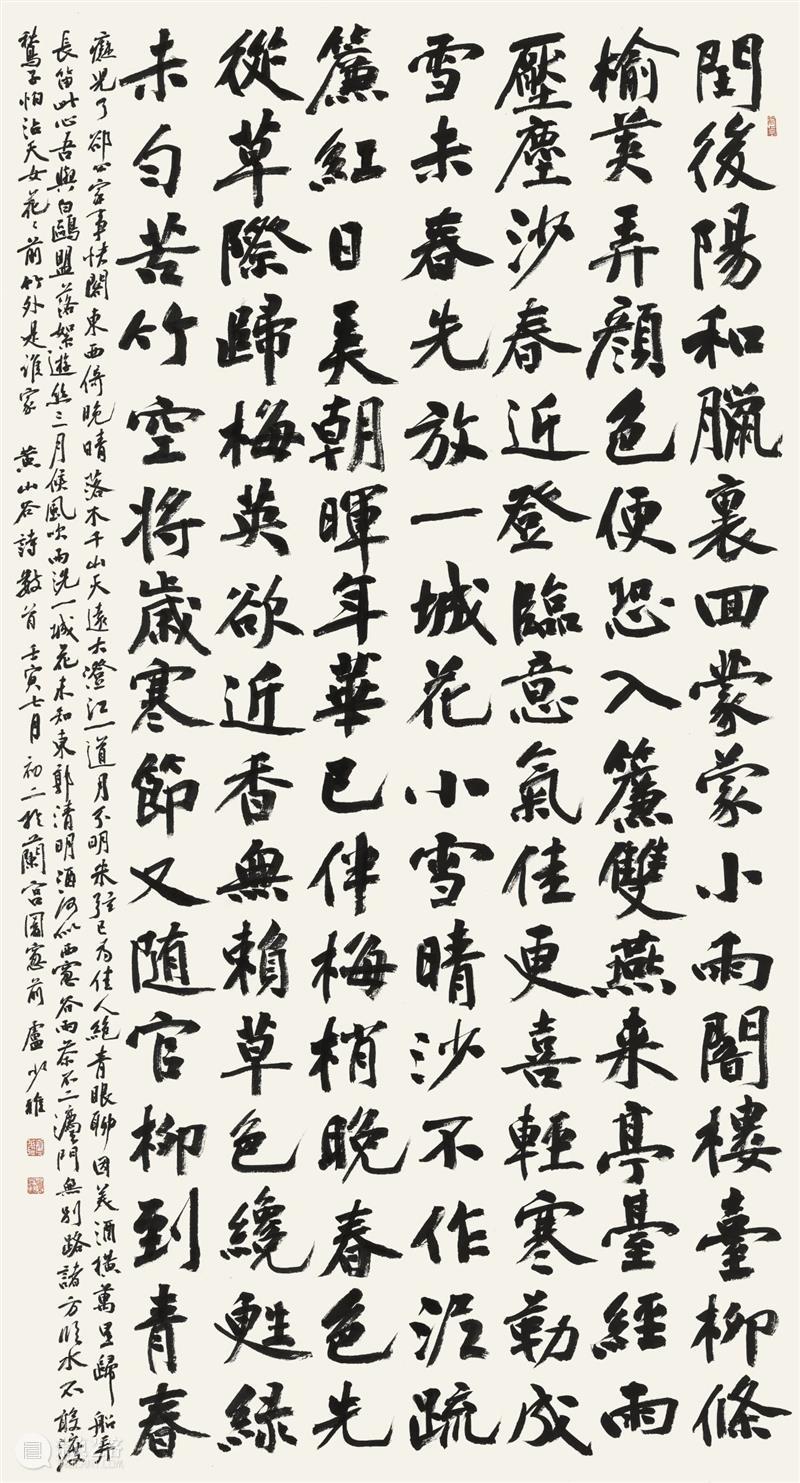 閏後陽和臘裏回蒙蒙小雨闇樓臺柳條
榆莢弄顏色便恐入簾雙燕来亭臺經雨
壓塵沙春近登臨意氣佳更喜輕寒勒成
雪未春先放一城花小雪晴沙不作泥疏
簾紅日美朝暉年華已伴梅梢晚春色先
從草際歸梅英欲近香無賴草色纔甦綠
未勻苦竹空将歲寒節又随官柳到青春
癡兒了卻公家事快閣東西倚晚晴落木千山天遠大澄江一道月分明朱弦已為佳人絕青眼聊因美酒橫萬里歸船弄
長笛此心吾與白鷗盟落絮遊絲三月候風吹雨洗一城花未知東郭清明酒何似西窗谷雨茶不二灋門無別路諸方臨水不敢渡
鶖子怕沾天女花々前竹外是誰家 黄山谷詩數首 壬寅七月初二於蘭宫圖窗前 盧少雅